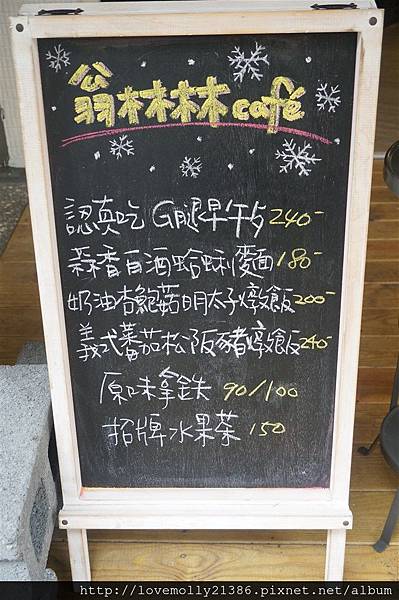 翁林林林café
認真吃 G腿早午ㄘ 240-
蒜香百酒蛤蜊麵 180-
奶油杏鮑菇明太子燉飯 200-
義式蕃茄松阪豬燉飯 240-
原味拿鐵 90/100
招牌水果茶 150
http://lovemolly21386.pixnet.net/album